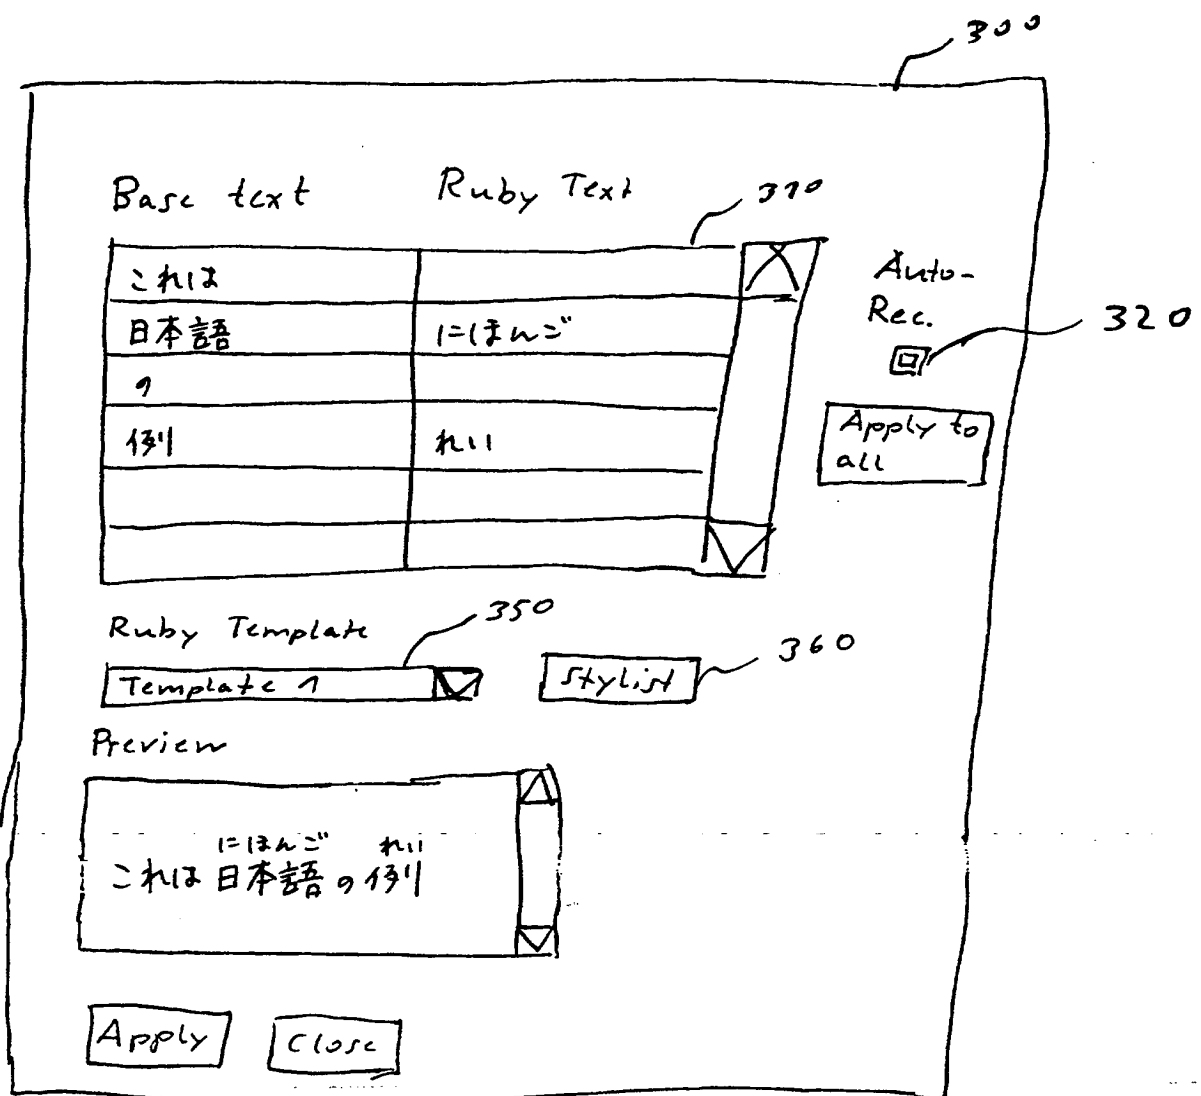 300
Base text Ruby Text 310
これは
日本語 にほんご
の
例 れい
Auto-
Rec.
320
Apply to
all
Ruby Template 350
Template 1
Stylist 360
Preview
にほんご れい
これは日本語の例
Apply Close